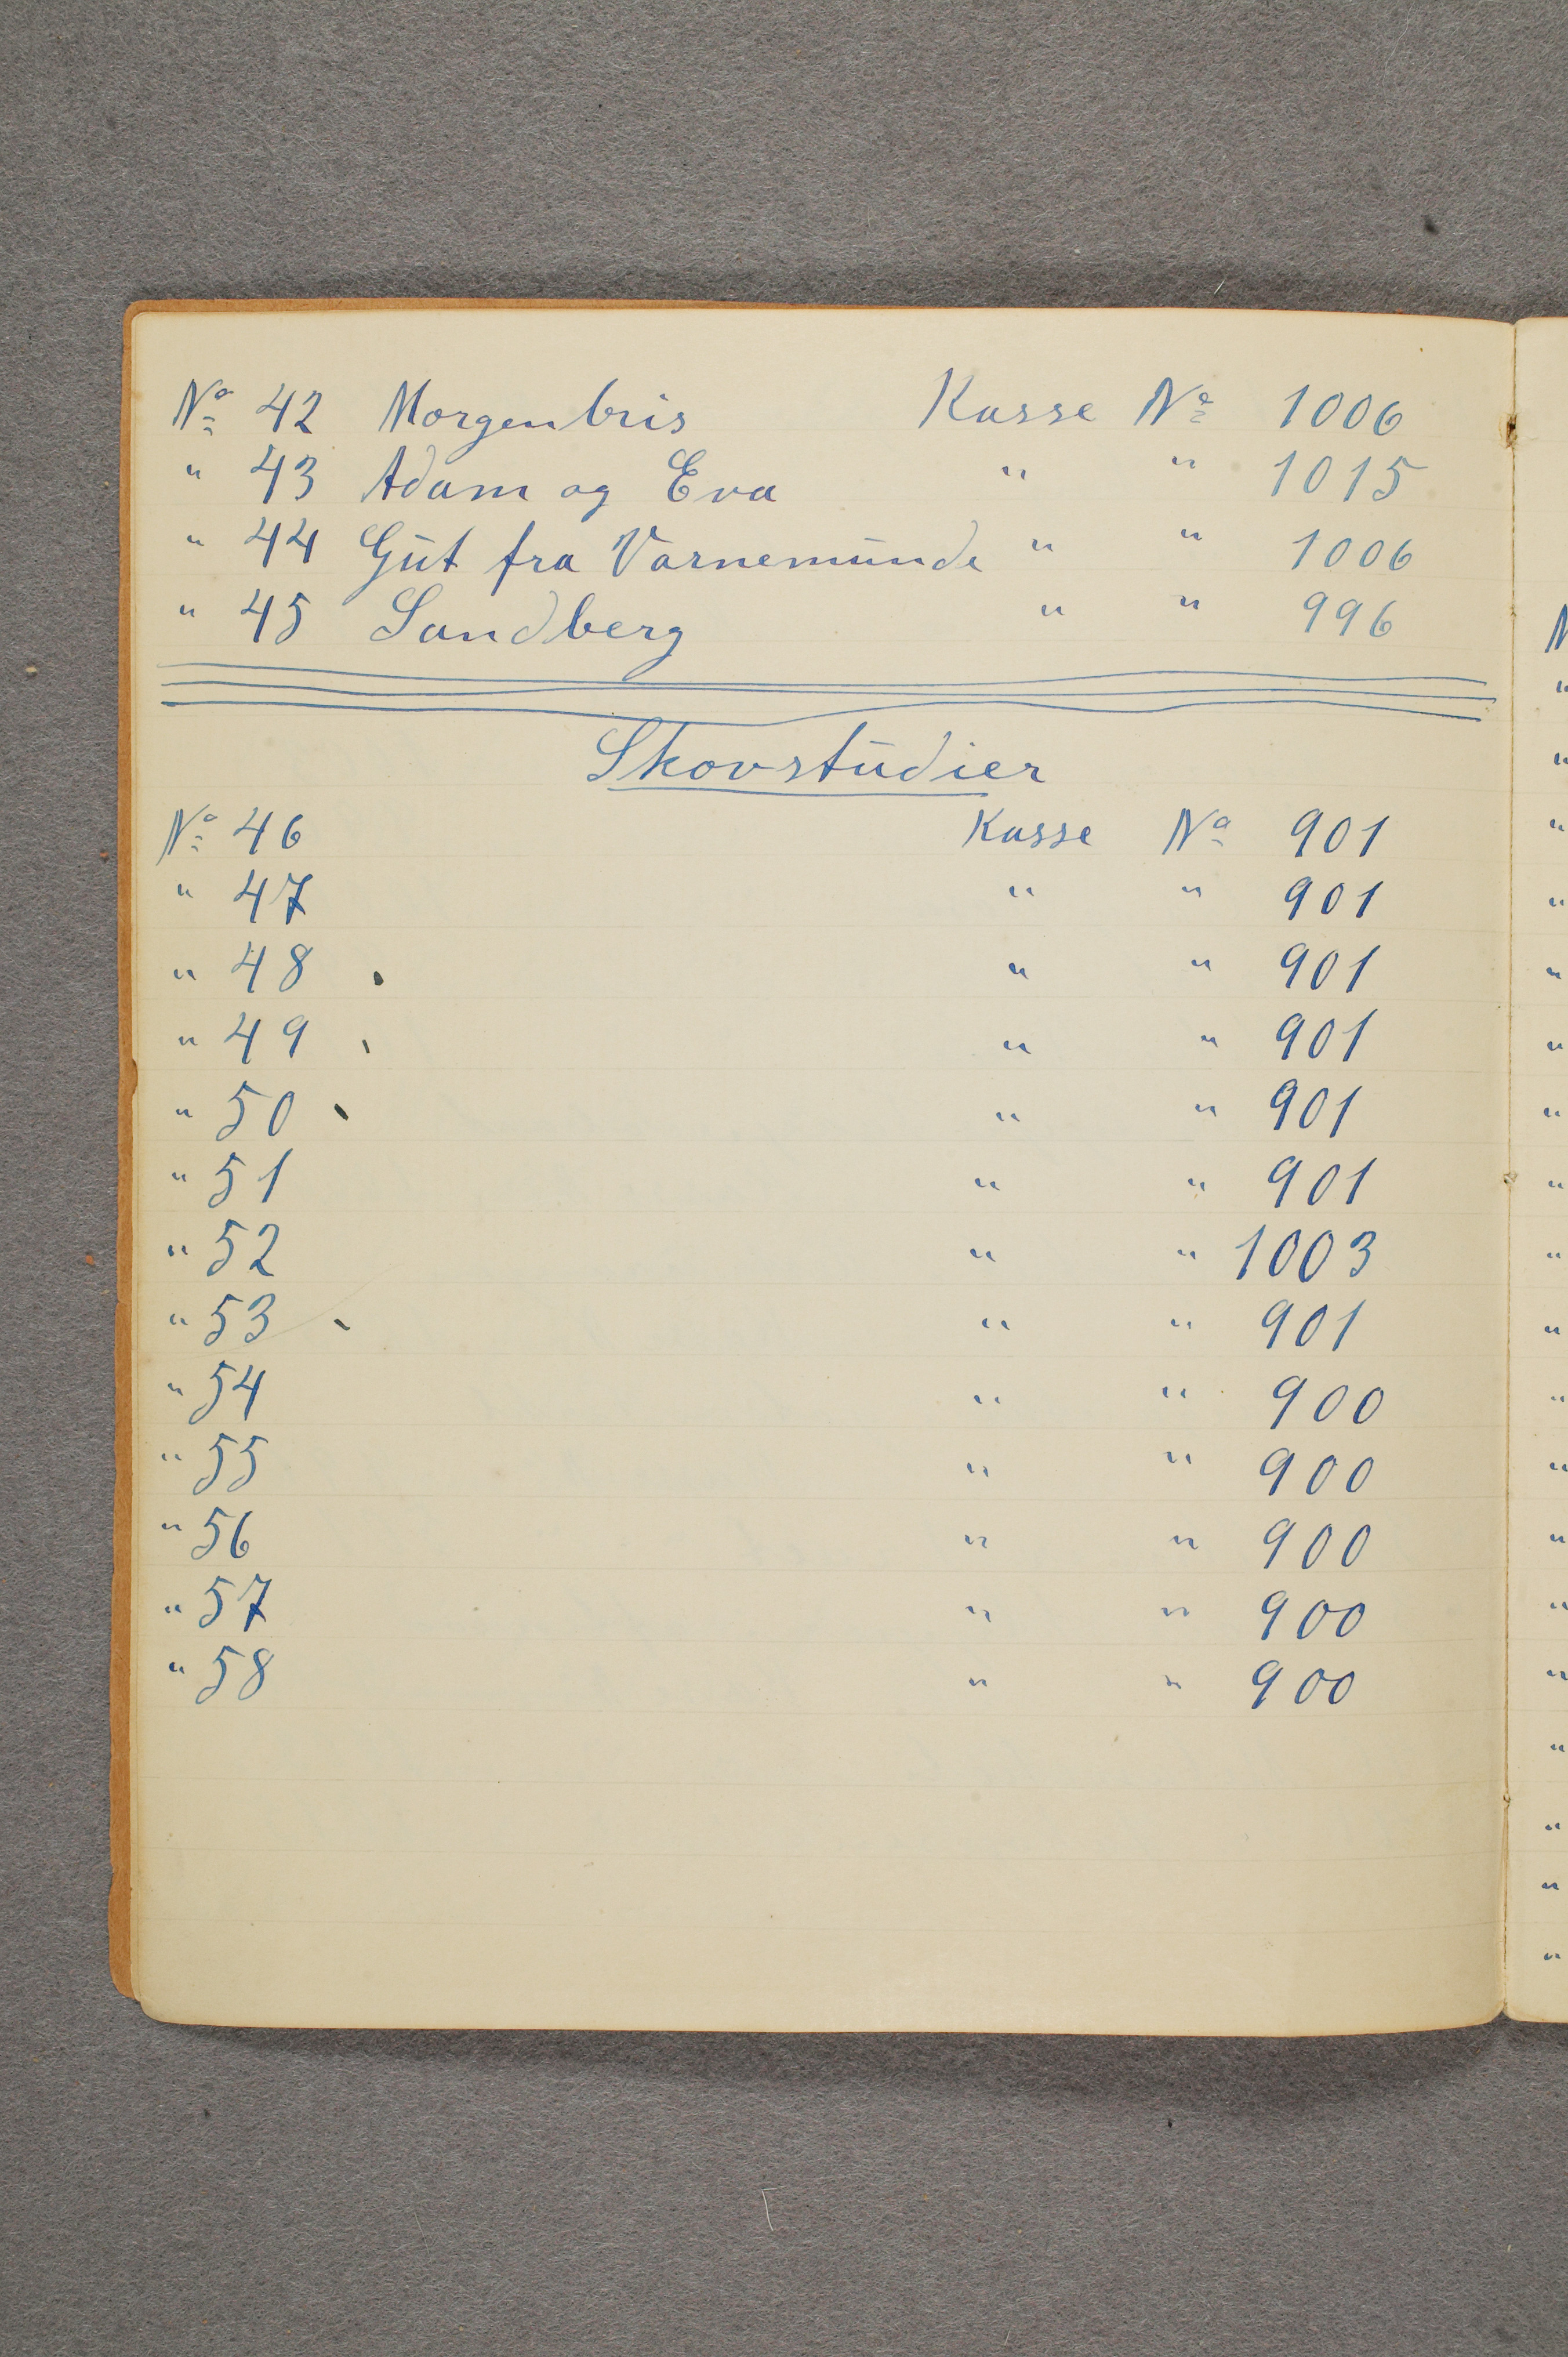 Nº 42 Morgenbris Kasse Nº 1006
" 43 Adam og Eva " " 1015
" 44 Gut fra Varnemunde " " 1006
" 45 Sandberg " " 996
Skovstudier
Nº 46 Kasse Nº 901
" 47 " " 901
" 48 " " 901
" 49 " " 901
" 50 " " 901
" 51 " " 901
" 52 " " 1003
" 53 " " 901
" 54 " " 900
" 55 " " 900
" 56 " " 900
" 57 " " 900
" 58 " " 900